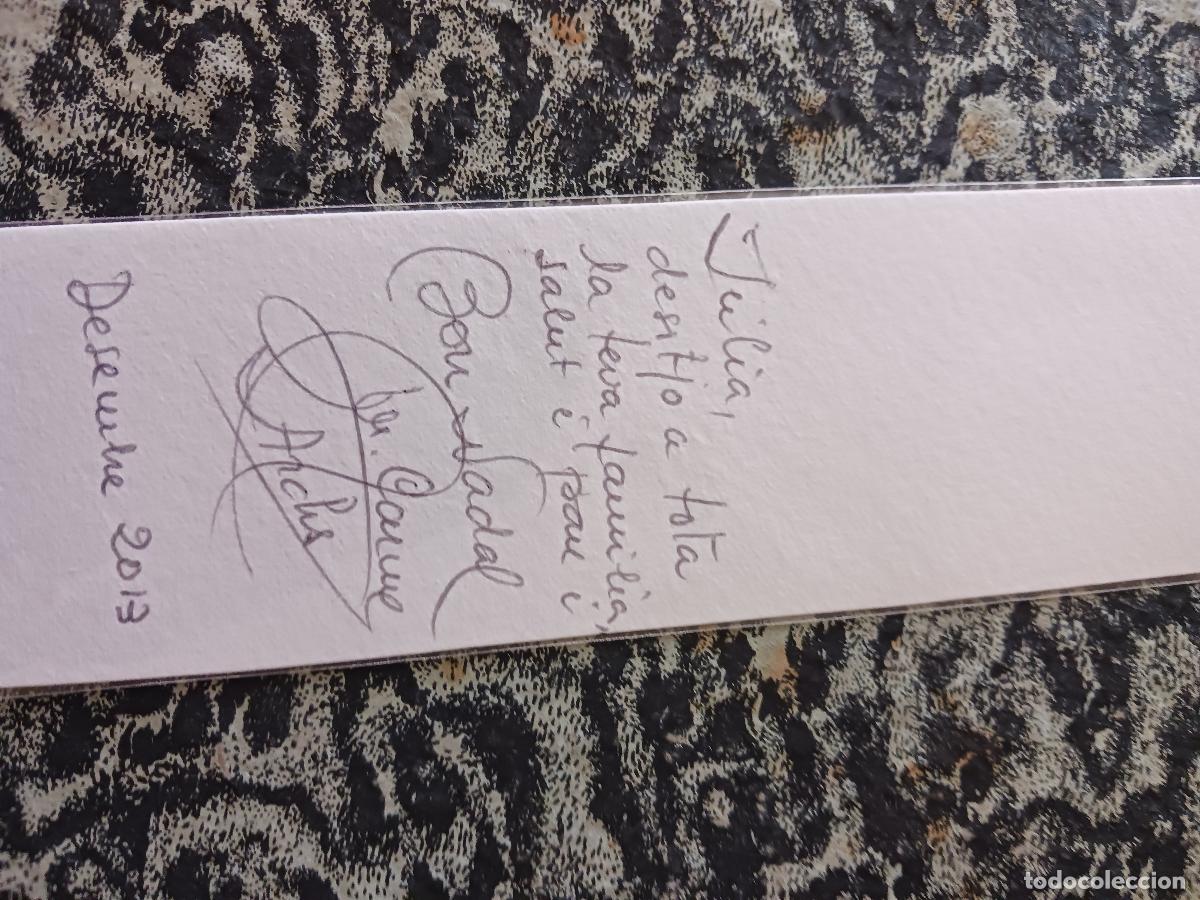 Júlia,
desitjo a tota
la teva família,
salut i pau i
Bon Nadal
M. Carme
Archs
Desembre 2013
todocoleccion